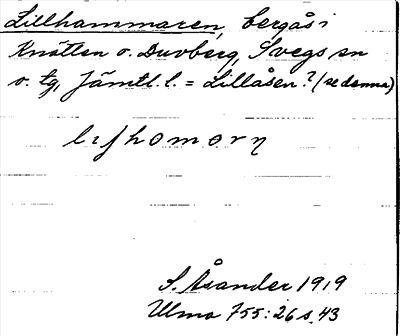 Lillhammaren, bergås i
Knätten o. Duvberg, Svegs sn
o. tg, Jämtl. l. = Lillåsen? (se denna)
S. Åsander 1919
Ulma 755: 26 s. 43